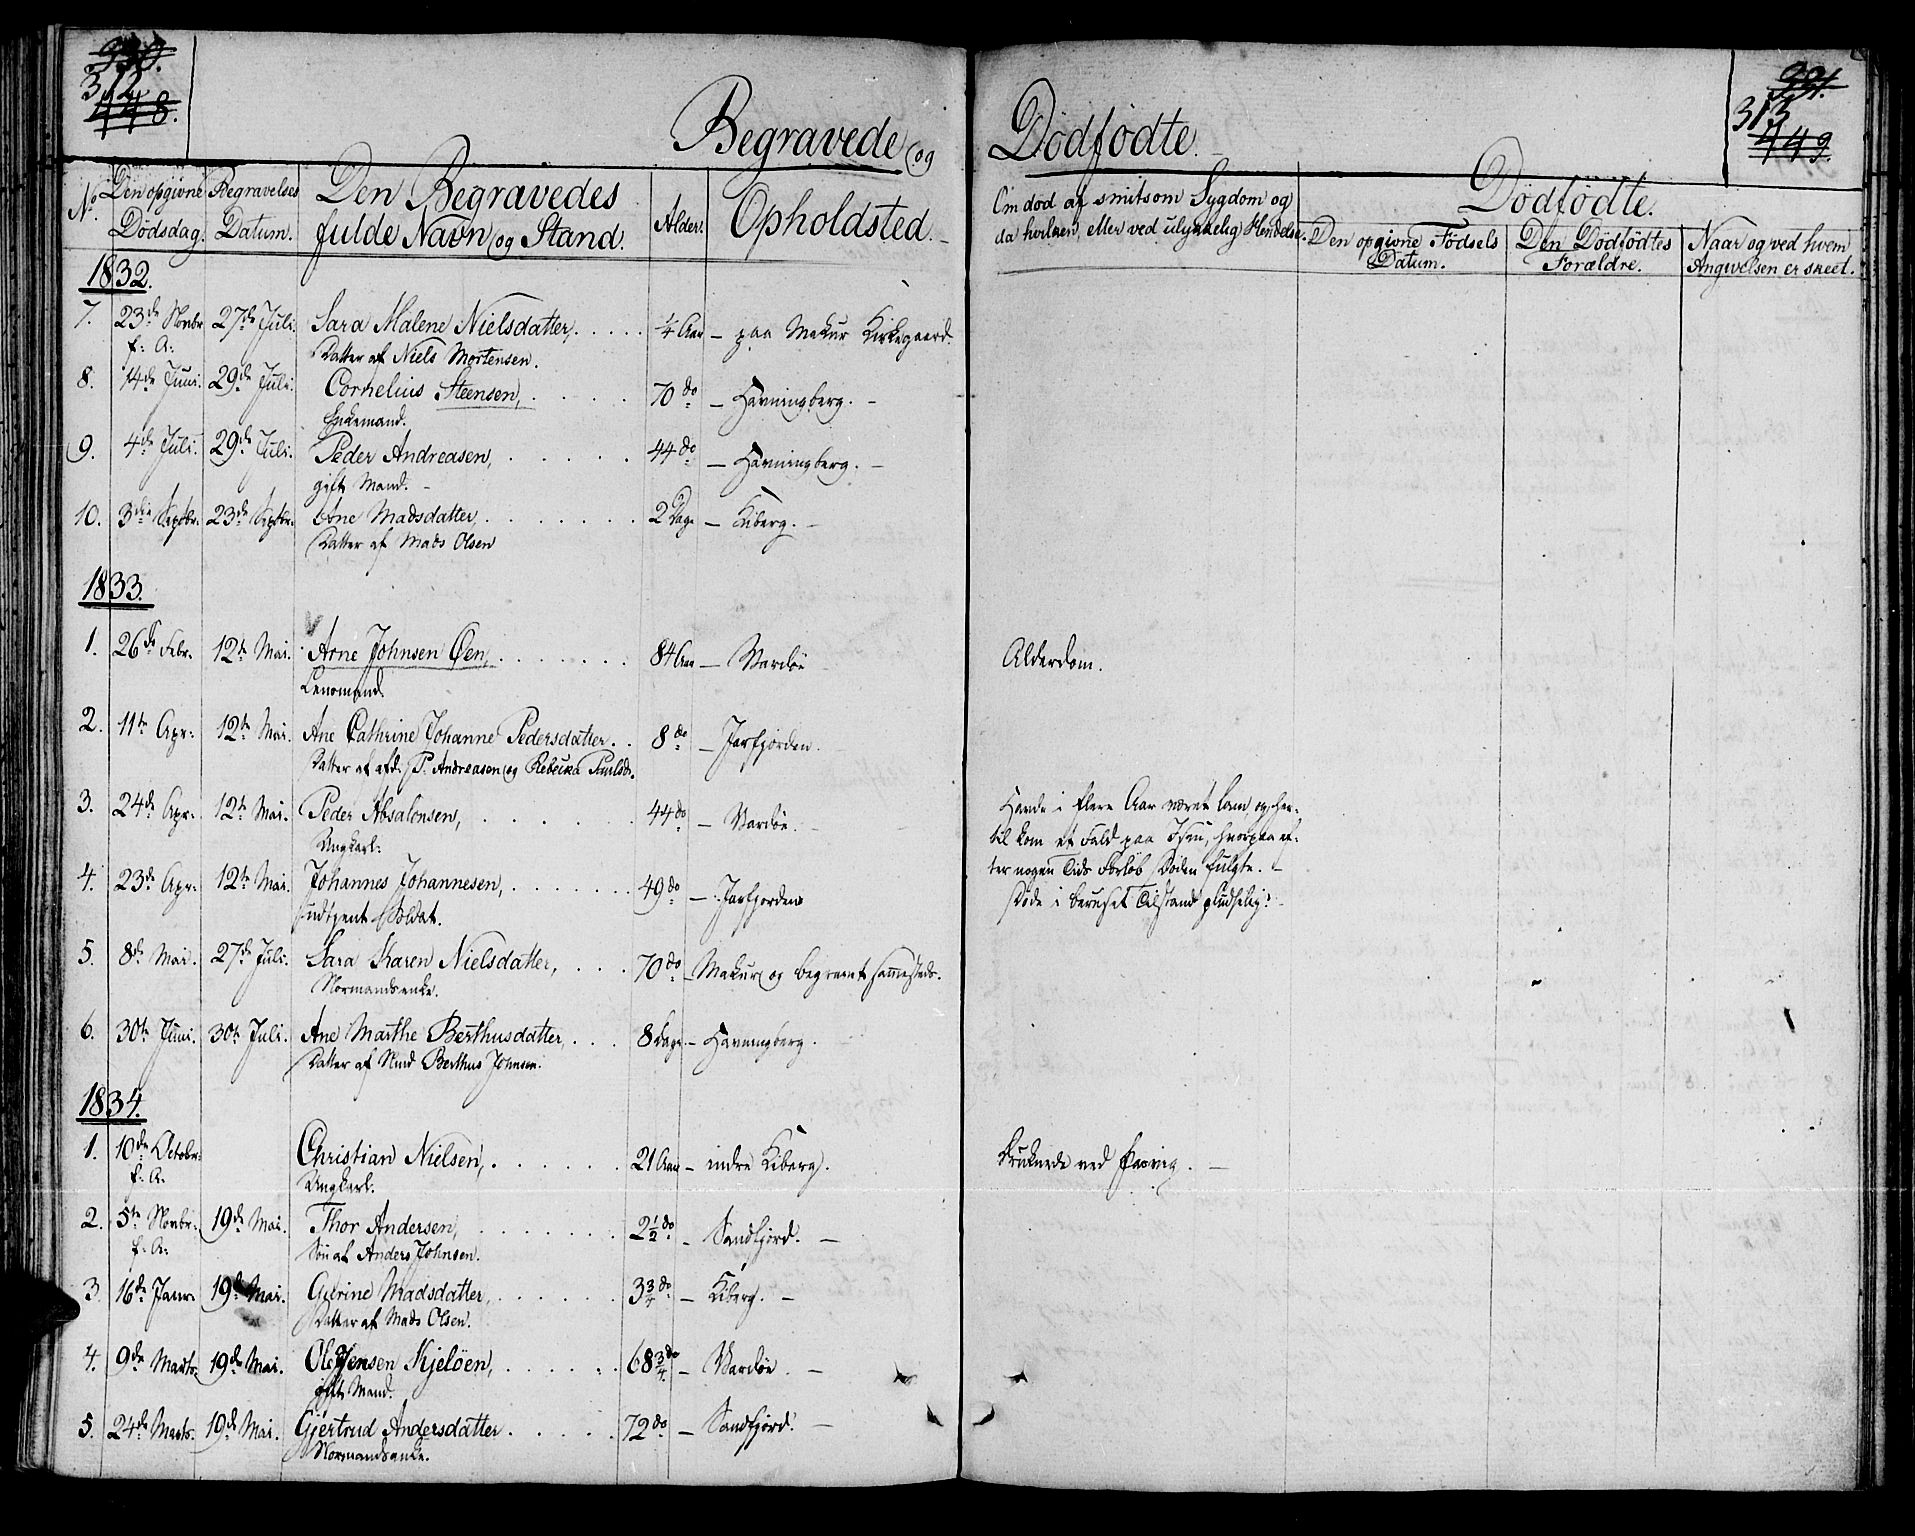 330.
312
448.
Begravede og
Dödfödte.
331.
313
449.
No.
Den opgivne Dödsdag.
Begravelses Datum.
Den Begravedes fulde Navn og Stand.
Alder.
Opholdsted.
Om död af smitsom Sygdom og da hvilken, eller ved ulykkelig Hendelse.
Dödfödte.
Den opgivne Födsels Datum.
Den Dödfödtes Forældre.
Naar og ved hvem Angivelsen er skeet.
1832.
7. 23de Novbr 27de Juli. Sara Malene Nielsdatter, ¼ Aar – paa Makur Kirkegaard.
f: A: Datter af Niels Mortensen.
8. 14de Juni. 29de Juli. Cornelius Steensen, 70 do – Havningberg. –
Enkemand.
9. 4de Juli. 29de Juli. Peder Andreasen, 44 do – Havningberg. –
gift Mand. –
10. 3die Septbr. 23de Septbr. Ane Madsdatter, 2 Dage – Kiberg. –
Datter af Mads Olsen
1833.
1. 26de Febr. 12te Mai. Arne Johnsen Öen, 84 Aar – Vardöe Alderdom.
2. 11te Apr: 12te Mai. Ane Cathrine Johanne Pedersdatter. 8 do – Jarfjorden.
Datter af afd. P. Andreasen og Rebecka
3. 24de Apr: 12te Mai. Peder Absalonsen, 44 do – Vardöe. Havde i flere Aar været lam, og her-
Ungkarl. til kom et Fald paa Isen, hvorpaa ef-
ter nogen Tids Forlöb Döden fulgte. –
4. 23de Apr: 12te Mai. Johannes Johannesen, 49 do – Jarfjorden Döde i beruset Tilstand pludselig.
udtjent Soldat.
5. 8de Mai. 27de Juli. Sara Karen Nielsdatter, 70 do – Makur og begravet sammesteds.
Normandsenke.
6. 30te Juni. 30te Juli. Ane Marthe Berthusdatter, 8 Dage – Havningberg.
Datter af Nmd Berthus Johnsen.
1834.
1. 10de Octobr: Christian Nielsen, 21 Aar – indre Kiberg. Druknede ved
f: A: Ungkarl.
2. 5te Novbr: 19de Mai. Thor Andersen, 2½ do – Sandfjord. –
f: A: Sön af Anders Johnsen.
3. 16de Janr: 19de Mai. Gurine Madsdatter, 3¾ do – Kiberg. –
Datter af Mads Olsen.
4. 9de Marts. 19de Mai. Ole Jensen Kjelöen, 68¾ do – Vardöe. –
gift Mand.
5. 24de Marts. 19de Mai. Gjertrud Andersdatter. 72 do – Sandfjord. –
Normandsenke.